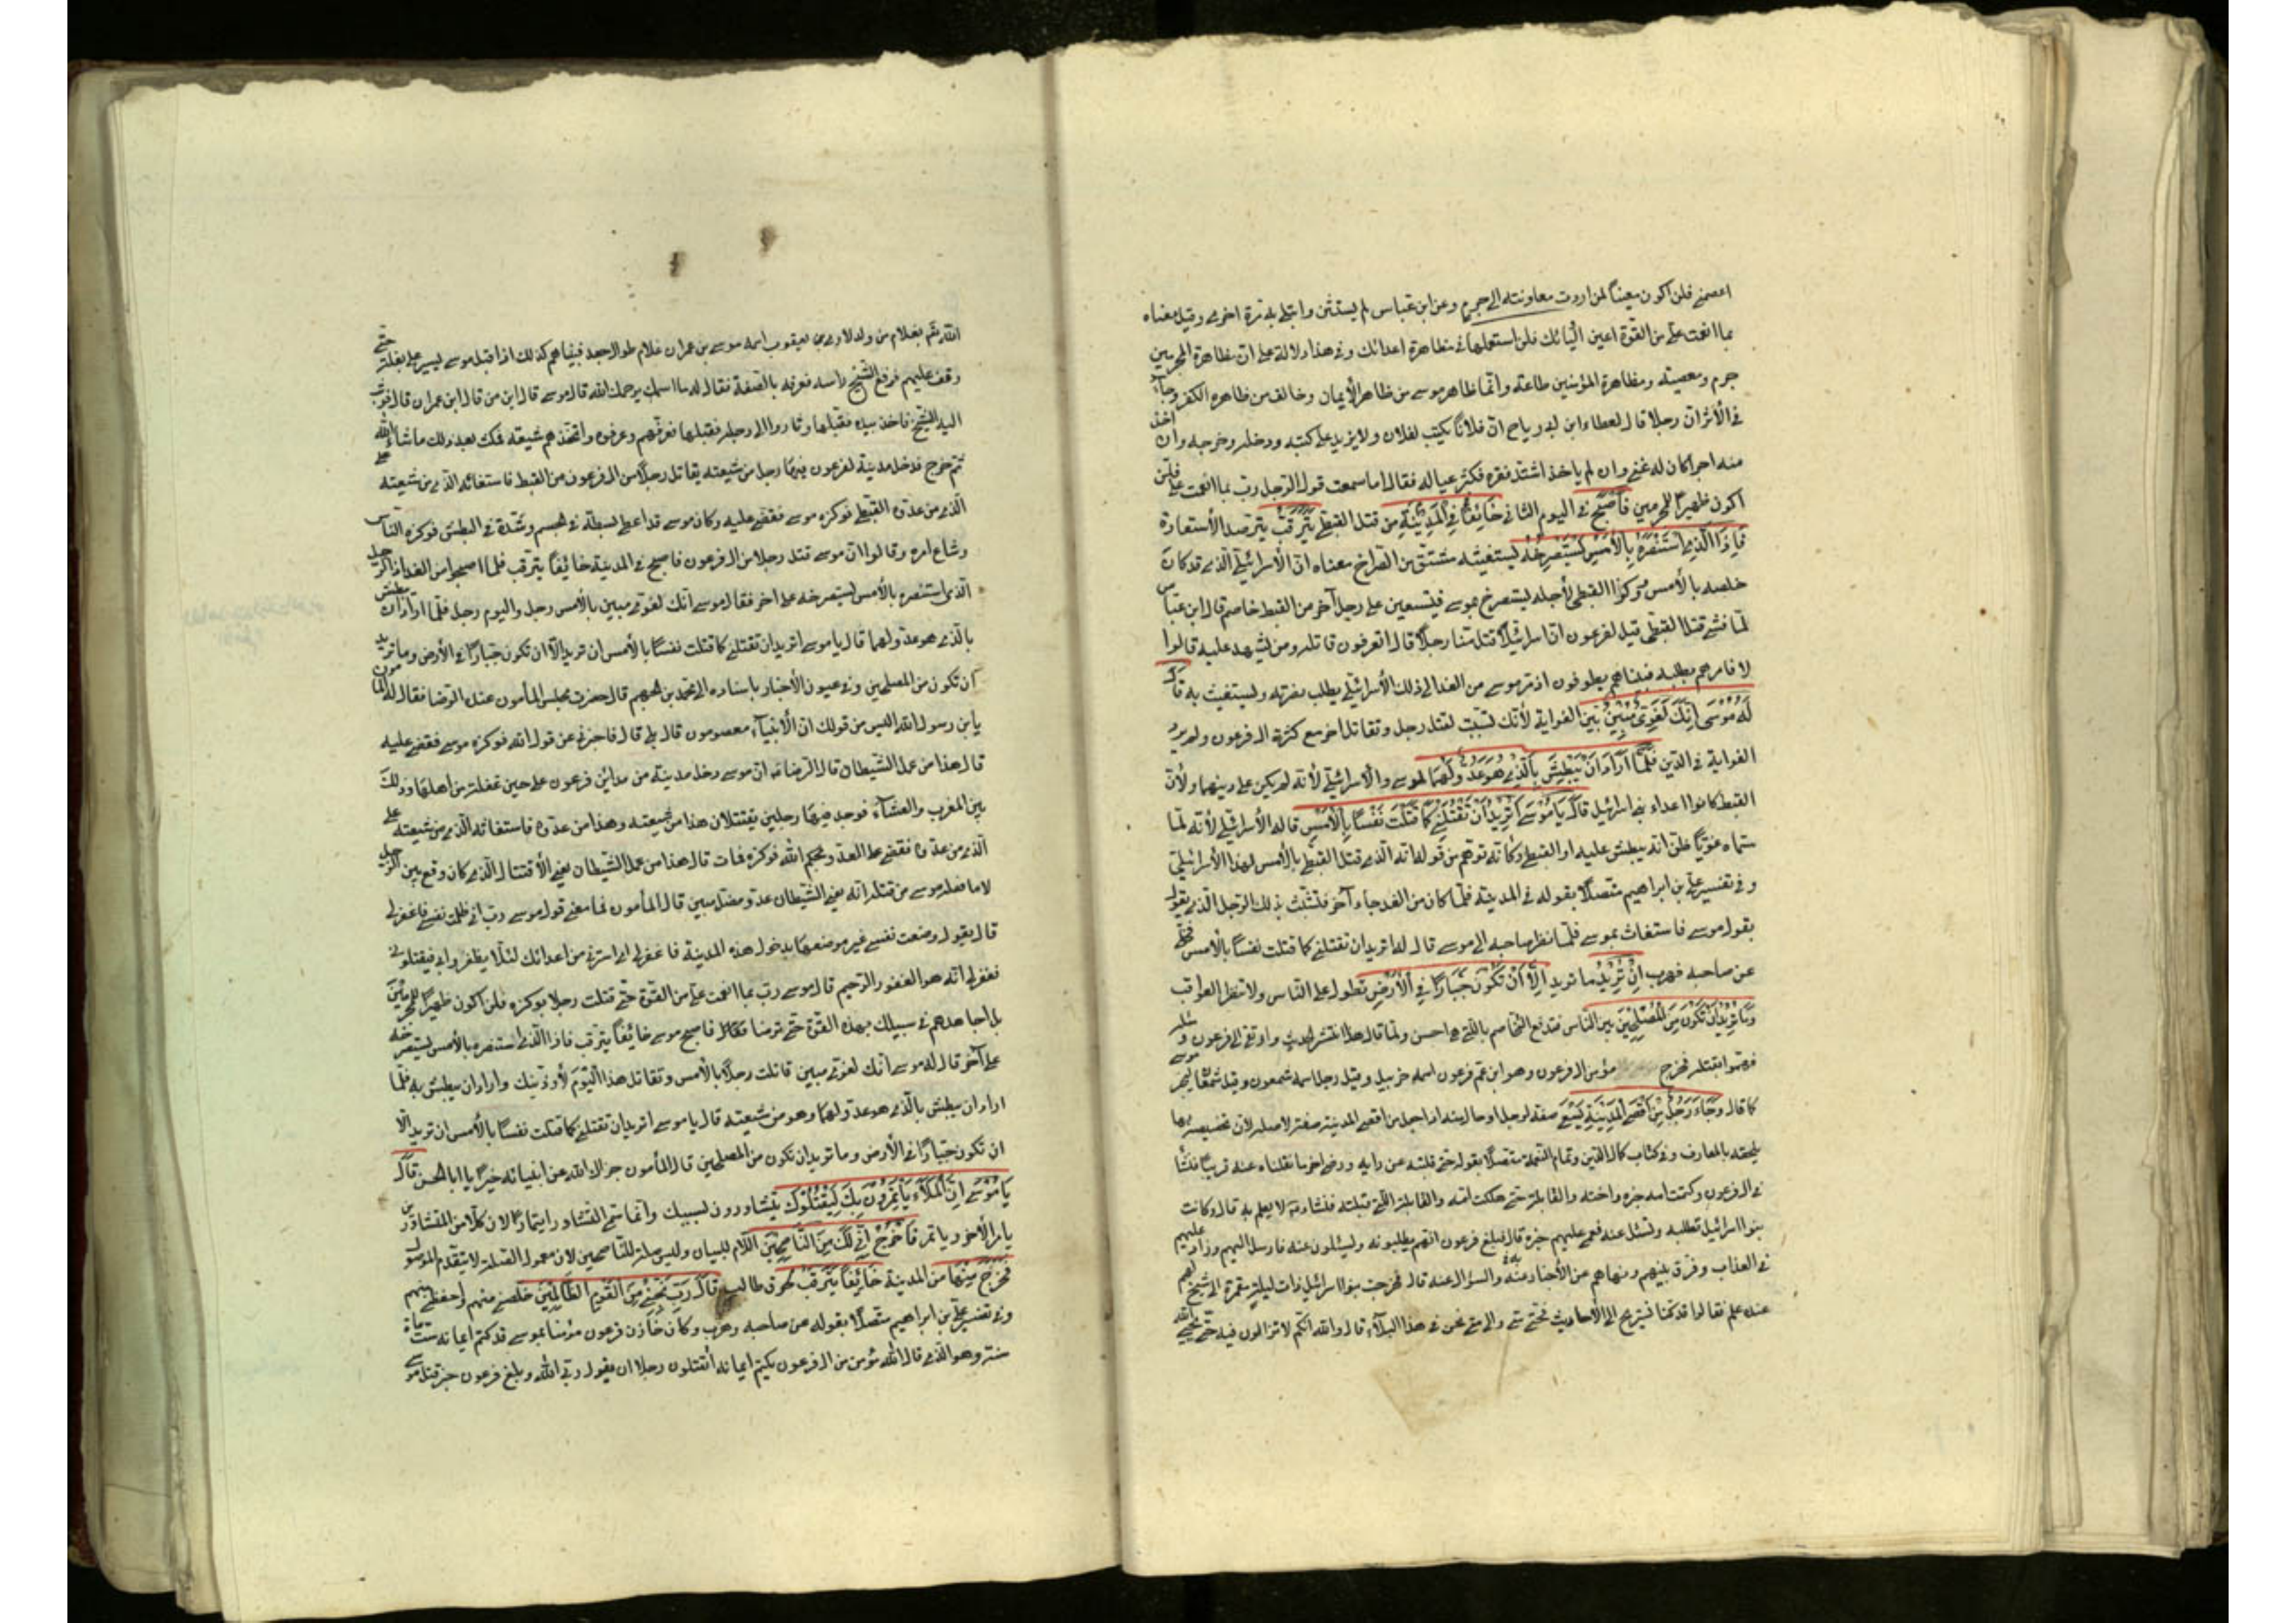 اعصمني فلن اكون معيناً لمن اردت معاونته الى جرم وعن ابن عباس لم يستثن وابتلي به مرّة اخرى وقيل معناه
بما انعمت علي من القوّة اعين اوليائك فلن استعملها في مظاهرة اعدائك وفي هذا دلالة على ان مظاهرة المجرمين
جرم ومعصية ومظاهرة المؤمنين طاعة وانما ظاهر موسى من ظاهر الأيمان وخالف من ظاهره الكفر وجاء
في الأثر ان رجلا قال لعطاء ابن ابي رياح ان فلاناً يكتب لفلان ولا يزيد على كتبه ودخله وخرجه وان اخذ
منه اجرا كان له غني وان لم ياخذ اشتد فقره فكثر عياله فقال اما سمعت قول الرجل رب بما انعمت علي فلن
اكون ظهيراً للمجرمين فَاَصْبَحَ في اليوم الثاني خَائِفاً فِي الْمَدِينَةِ من قتل القبطي يَتَرَقَّبُ يترصد الأستعادة
فَاِذَا الَّذِي اسْتَنْصَرَهُ بِالْأَمْسِ يَسْتَصْرِخُهُ يستغيثه مشتق من الصراخ معناه ان الأسرائيلي الذي قد كان
خلصه بالأمس ووكز القبطي لأجله يستصرخ بموسى فيستعين على رجل آخر من القبط خاصم قال ابن عباس
لما فشي قتل القبطي قيل لفرعون ان اسرائيلاً قتل منا رجلاً قال اتعرفون قاتله ومن يشهد عليه قالوا
لا فامرهم بطلبه فبيناهم يطوفون اذ مر موسى من الغد الى ذلك الأسرائيلي يطلب نصرته ويستغيث به قَالَ
لَهُ مُوسَى اِنَّكَ لَغَوِيٌّ مُبِينٌ بين الغواية لأنك تسببت لقتل رجل وتقاتل اخر مع كثرة ال فرعون ولم يرد
الغواية في الدين فَلَمَّا اَرَادَ اَنْ يَبْطِشَ بِالَّذِي هُوَ عَدُوٌّ لَهُمَا لموسى والاسرائيلي لأنه لم يكن على دينهما ولأن
القبط كانوا اعداء بني اسرائيل قَالَ يَا مُوسَى اَتُرِيدُ اَنْ تَقْتُلَنِي كَمَا قَتَلْتَ نَفْساً بِالْأَمْسِ قاله الأسرائيلي لأنه لما
سماه غوياً ظن انه يبطش عليه او القبطي وكانه توهم من قوله انه الذي قتل القبطي بالأمس لهذا الأسرائيلي
وفي تفسير علي بن ابراهيم متصلاً بقوله في المدينة فلما كان من الغد جاء آخر فتشبث بذلك الرجل الذي يقول
بقول موسى فاستغاث بموسى فلما نظر صاحبه الى موسى قال له اتريد ان تقتلني كما قتلت نفساً بالأمس فخلى
عن صاحبه فهرب اِنْ تُرِيدُ ما تريد اِلَّا اَنْ تَكُونَ جَبَّاراً فِي الْأَرْضِ تطول على الناس ولا تنظر العواقب
وَمَا تُرِيدُ اَنْ تَكُونَ مِنَ الْمُصْلِحِينَ بين الناس فتدفع التخاصم بالتي هي احسن ولما قال هذا انتشر الحديث وارتقى الى فرعون وملائه
فهموا بقتله فخرج مؤمن ال فرعون وهو ابن عم فرعون اسمه خربيل وقيل رجل اسمه شمعون وقيل شمعان ليخبر موسى
كما قال وَجَاءَ رَجُلٌ مِنْ اَقْصَى الْمَدِينَةِ يَسْعَى صفة لرجل او حال منه اذا جعل من اقصى المدينة صفة له لا صله لان تخصيصه بها
يلحقه بالمعارف وفي كتاب كمال الدين وتمام النعمة متصلاً بقوله حتى قلبته عن رايه ورضي اخر ما نقلناه عنه قريباً فنشأ
في ال فرعون وكتمت امه خبره واخته والقابلة حتى هلكت امه والقابلة التي قبلته فنشاء لا يعلم به قال وكانت
بنو اسرائيل تطلبه وتسئل عنه فعمي عليهم خبره قال فبلغ فرعون انهم يطلبونه ويسئلون عنه فارسل اليهم وزاد عليهم
في العذاب وفرق بينهم ونهاهم عن الأخبار به والسؤال عنه قال فخرجت بنو اسرائيل ذات ليلة مقمرة الى شيخ لهم
عنده علم فقالوا قد كنا نستريح الى الأحاديث فحتى متى والى متى نحن في هذا البلاء قال والله انكم لا تزالون فيه حتى يجيئ الله
الله بغلام من ولد لاوي بن يعقوب اسمه موسى بن عمران غلام طوال جعد فبيناهم كذلك اذ اقبل موسى يسير على بغلة حتى
وقف عليهم فرفع الشيخ راسه فعرفه بالصفة فقال له ما اسمك يرحمك الله قال موسى قال ابن من قال ابن عمران قال فوثب
اليه الشيخ فاخذ بيده فقبلها وثاروا الى رجله فقبلوها فعرفهم وعرفوه واتخذهم شيعة فمكث بعد ذلك ما شاء الله
ثم خرج فدخل مدينة لفرعون فيها رجل من شيعته يقاتل رجلاً من ال فرعون من القبط فاستغاثه الذي من شيعته على
الذي من عدوه القبطي فوكزه موسى فقضى عليه وكان موسى قد اعطي بسطة في الجسم وشدة في البطش فوكزه الناس
وشاع امره وقالوا ان موسى قتل رجلا من ال فرعون فاصبح في المدينة خائفاً يترقب فلما اصبحوا من الغد اذا الرجل
الذي استنصره بالأمس يستصرخه على اخر فقال موسى انك لغوي مبين بالأمس رجل واليوم رجل فلما اراد ان يبطش
بالذي هو عدو لهما قال يا موسى اتريد ان تقتلني كما قتلت نفساً بالأمس ان تريد الا ان تكون جباراً في الأرض وما تريد
ان تكون من المصلحين وفي عيون الأخبار باسناده الى محمد بن الجهم قال حضرت مجلس المأمون عند الرضا فقال له المأمون
يا بن رسول الله اليس من قولك ان الأنبياء معصومون قال بلى قال فاخبرني عن قول الله فوكزه موسى فقضى عليه
قال هذا من عمل الشيطان قال الرضا ان موسى دخل مدينة من مدائن فرعون على حين غفلة من اهلها وذلك
بين المغرب والعشاء فوجد فيها رجلين يقتتلان هذا من شيعته وهذا من عدوه فاستغاثه الذي من شيعته على
الذي من عدوه فقضى على العدو بحكم الله فوكزه فمات قال هذا من عمل الشيطان يعني الأقتتال الذي كان وقع بين الرجلين
لا ما فعله موسى من قتله انه يعني الشيطان عدو مضل مبين قال المأمون فما معنى قول موسى رب اني ظلمت نفسي فاغفر لي
قال يقول وضعت نفسي غير موضعها بدخول هذه المدينة فاغفر لي اي استرني من اعدائك لئلا يظفروا بي فيقتلوني
فغفر له انه هو الغفور الرحيم قال موسى رب بما انعمت علي من القوة حتى قتلت رجلا بوكزه فلن اكون ظهيراً للمجرمين
بل اجاهدهم في سبيلك بهذه القوة حتى ترضا فاصبح موسى خائفاً يترقب فاذا الذي استنصره بالأمس يستصرخه
على آخر قال له موسى انك لغوي مبين قاتلت رجلاً بالأمس وتقاتل هذا اليوم لأوذينك واراد ان يبطش به فلما
اراد ان يبطش بالذي هو عدو لهما وهو من شيعته قال يا موسى اتريد ان تقتلني كما قتلت نفساً بالأمس ان تريد الا
ان تكون جباراً في الأرض وما تريد ان تكون من المصلحين قال المأمون جزاك الله عن انبيائه خيراً يا ابا الحسن قَالَ
يَا مُوسَى اِنَّ الْمَلَأَ يَأْتَمِرُونَ بِكَ لِيَقْتُلُوكَ يتشاورون لسببك وانما سمي التشاور ايتماراً لان كلاً من المتشاورين
يامر الأخر وياتمر فَاخْرُجْ اِنِّي لَكَ مِنَ النَّاصِحِينَ اللام للبيان وليس صلة للناصحين لان معمول الصلة لا يتقدم الموصول
فَخَرَجَ مِنْهَا من المدينة خَائِفاً يَتَرَقَّبُ لحوق طالب قَالَ رَبِّ نَجِّنِي مِنَ الْقَوْمِ الظَّالِمِينَ خلصني منهم واحفظني منهم
وفي تفسير علي بن ابراهيم متصلاً بقوله عن صاحبه وهرب وكان خازن فرعون مؤمنا بموسى قد كتم ايمانه ستمائة
سنة وهو الذي قال الله مؤمن من ال فرعون يكتم ايمانه أتقتلون رجلا ان يقول ربي الله وبلغ فرعون خبر قتل موسى